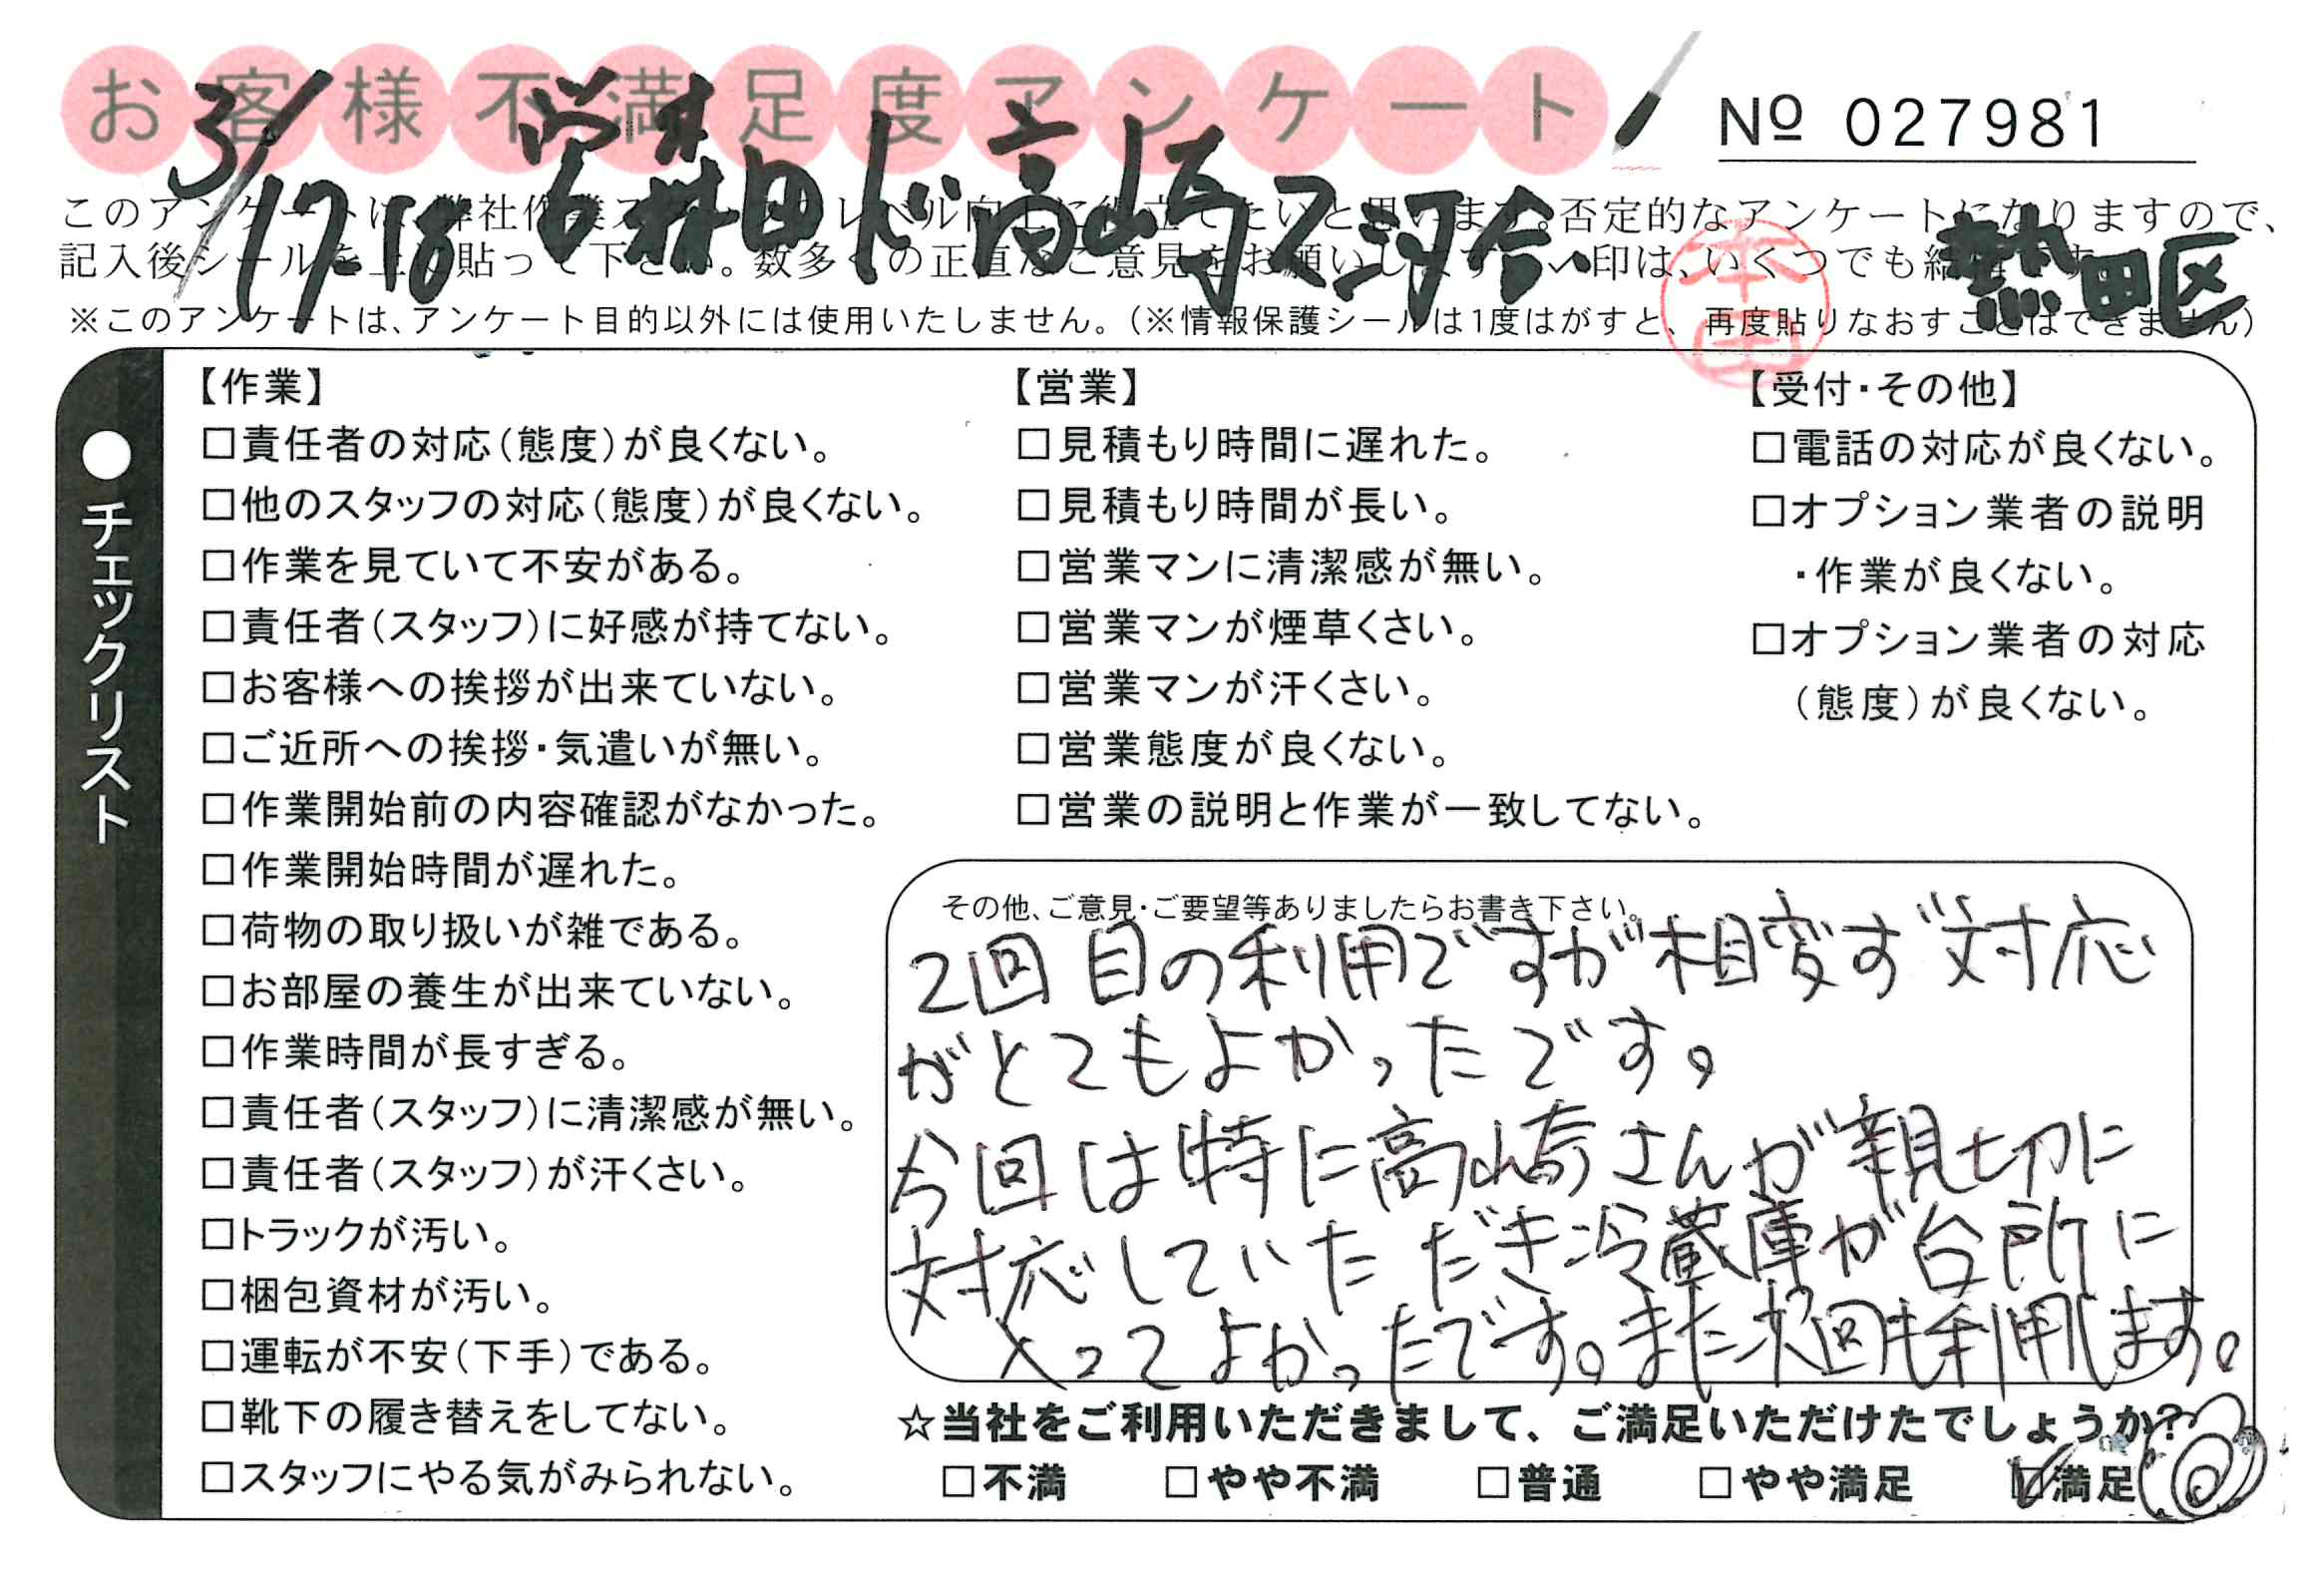 お客様不満足度アンケート
№ 027981
3/17-18 営林田ド高崎ス河合
熱田区
本田
このアンケートは、弊社作業スタッフのレベル向上に役立てたいと思います。否定的なアンケートになりますので、
記入後シールを上に貼って下さい。数多くの正直なご意見をお願いします。レ印は、いくつでも結構です。
※このアンケートは、アンケート目的以外には使用いたしません。(※情報保護シールは1度はがすと、再度貼りなおすことはできません)
●チェックリスト
【作業】
□責任者の対応(態度)が良くない。
□他のスタッフの対応(態度)が良くない。
□作業を見ていて不安がある。
□責任者(スタッフ)に好感が持てない。
□お客様への挨拶が出来ていない。
□ご近所への挨拶・気遣いが無い。
□作業開始前の内容確認がなかった。
□作業開始時間が遅れた。
□荷物の取り扱いが雑である。
□お部屋の養生が出来ていない。
□作業時間が長すぎる。
□責任者(スタッフ)に清潔感が無い。
□責任者(スタッフ)が汗くさい。
□トラックが汚い。
□梱包資材が汚い。
□運転が不安(下手)である。
□靴下の履き替えをしてない。
□スタッフにやる気がみられない。
【営業】
□見積もり時間に遅れた。
□見積もり時間が長い。
□営業マンに清潔感が無い。
□営業マンが煙草くさい。
□営業マンが汗くさい。
□営業態度が良くない。
□営業の説明と作業が一致してない。
【受付・その他】
□電話の対応が良くない。
□オプション業者の説明
・作業が良くない。
□オプション業者の対応
(態度)が良くない。
その他、ご意見・ご要望等ありましたらお書き下さい。
2回目の利用ですが相変ず対応
がとてもよかったです。
今回は特に高崎さんが親切に
対応していただき冷蔵庫が台所に
入ってよかったです。また次回も利用します。
☆当社をご利用いただきまして、ご満足いただけたでしょうか?
□不満 □やや不満 □普通 □やや満足 ☑満足